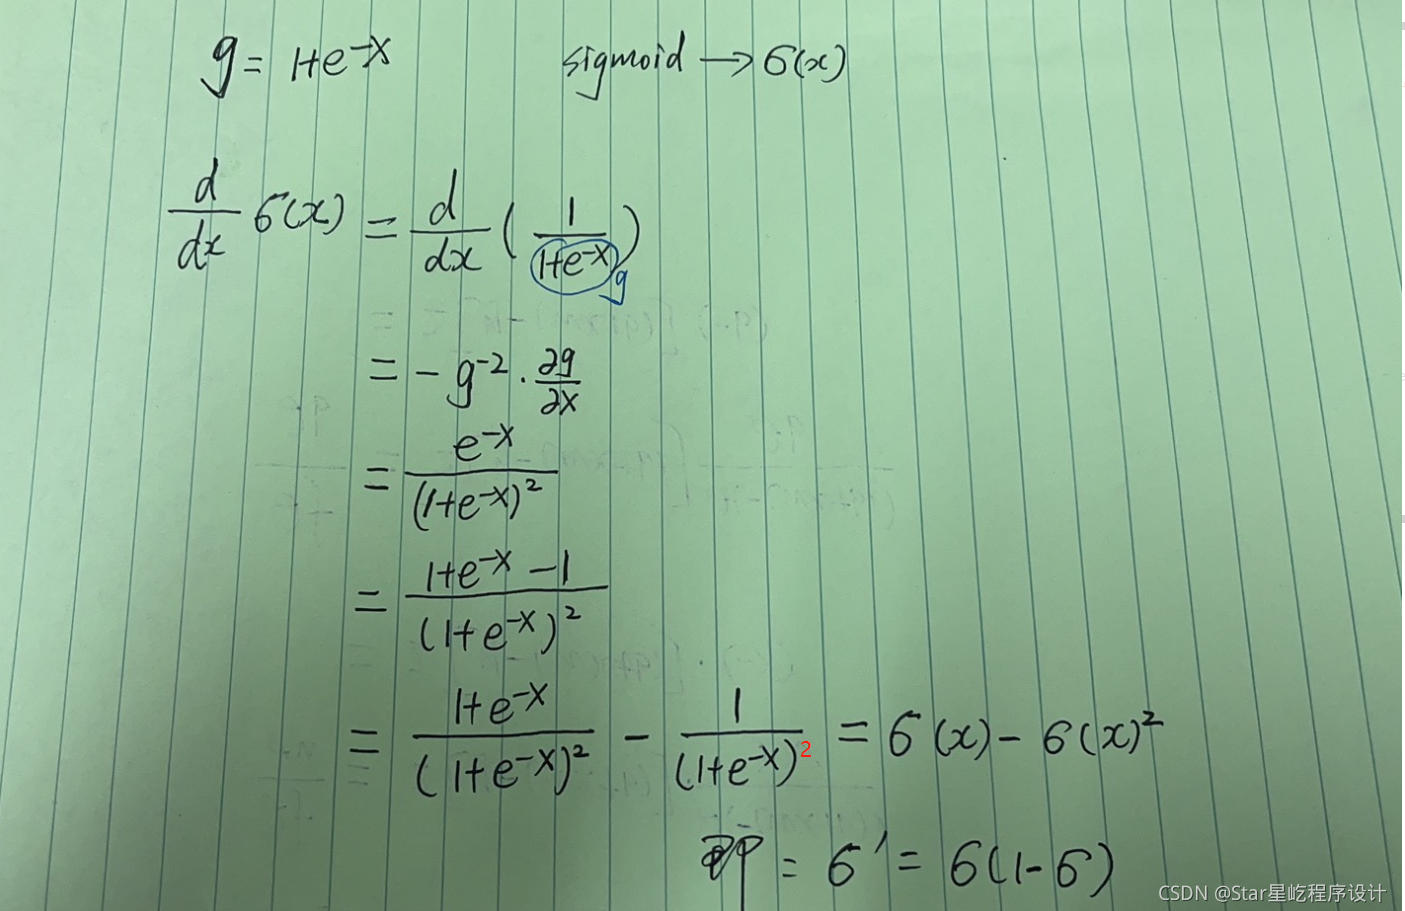 g = 1+e^-x sigmoid → σ(x)
d/dx σ(x) = d/dx ( 1/(1+e^-x) ) g
= - g^-2 · ∂g/∂x
= e^-x/(1+e^-x)^2
= (1+e^-x -1)/(1+e^-x)^2
= (1+e^-x)/(1+e^-x)^2 - 1/(1+e^-x)^2 = σ(x) - σ(x)^2
即 = σ' = σ(1-σ)
CSDN @Star星屹程序设计